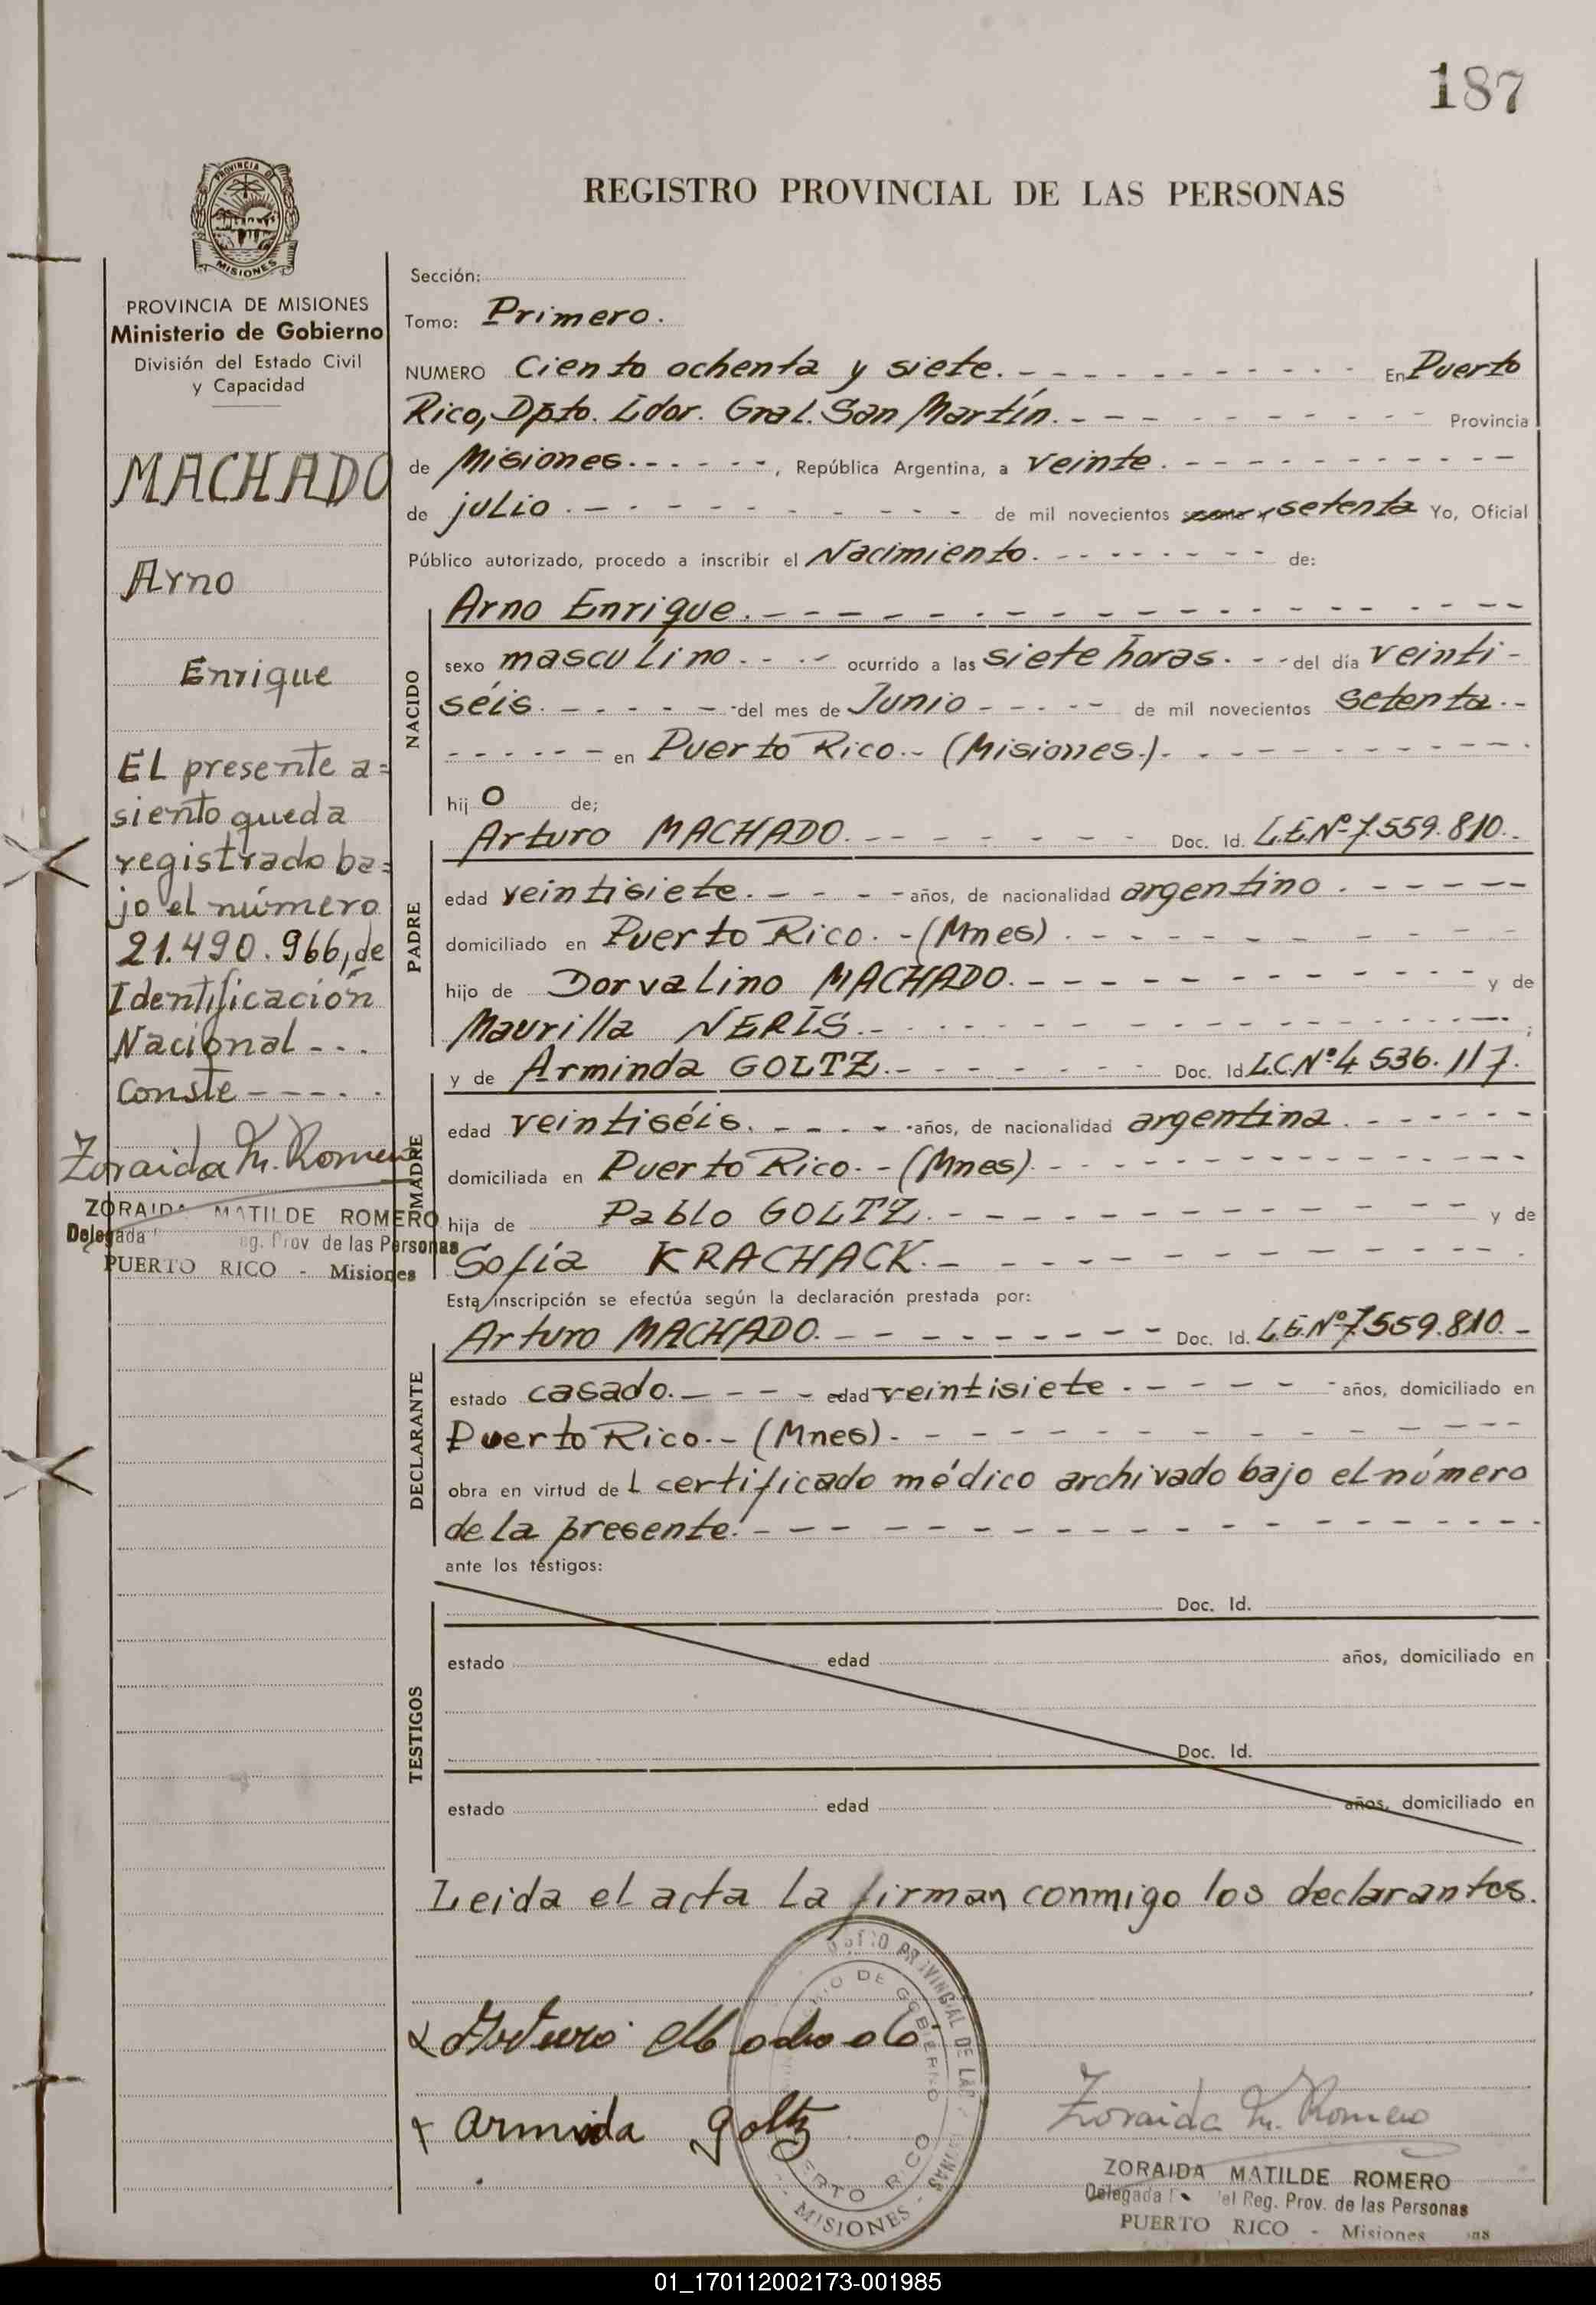 187
PROVINCIA DE
MISIONES
REGISTRO PROVINCIAL DE LAS PERSONAS
PROVINCIA DE MISIONES
Ministerio de Gobierno
División del Estado Civil
y Capacidad
MACHADO
Arno
Enrique
El presente a=
siento queda
registrado ba=
jo el número
21.490.966, de
Identificación
Nacional - - .
Conste - - - - .
Zoraida M. Romero
ZORAIDA MATILDE ROMERO
Delegada Reg. Prov de las Personas
PUERTO RICO - Misiones
Sección:
Tomo: Primero.
NUMERO Ciento ochenta y siete. - - - - - - - - - - - En Puerto
Rico, Dpto. Ldor. Gral. San Martín. - - - - - - - - - - Provincia
de Misiones. - - - - - , República Argentina, a veinte. - - - - - - - - - - -
de julio. - - - - - - - - - - de mil novecientos setenta Yo, Oficial
Público autorizado, procedo a inscribir el Nacimiento. - - - - - - - de:
NACIDO
Arno Enrique. - - - - - - - - - - - - - - - - - -
sexo masculino. - - - ocurrido a las siete horas. - - del día veinti -
séis. - - - - - - del mes de Junio - - - - - de mil novecientos setenta. -
- - - - - - en Puerto Rico. - (Misiones.). - - - - - - - - - - -
hijo de;
PADRE
Arturo MACHADO. - - - - - - - Doc. Id. L.E.Nº 7.559.810. -
edad veintisiete. - - - - - años, de nacionalidad argentino. - - - - -
domiciliado en Puerto Rico. - (Mnes). - - - - - - - - - -
hijo de Dorvalino MACHADO. - - - - - - - - - - y de
Maurilla NERIS. - - - - - - - - - - - - - - ;
MADRE
y de Arminda GOLTZ. - - - - - - - - Doc. Id L.C.Nº 4 536.117.
edad veintiséis. - - - - - años, de nacionalidad argentina. - - - - -
domiciliada en Puerto Rico. - (Mnes). - - - - - - - - - - - - -
hija de Pablo GOLTZ. - - - - - - - - - - - - y de
Sofía KRACHACK. - - - - - - - - - - - .
Esta inscripción se efectúa según la declaración prestada por:
DECLARANTE
Arturo MACHADO. - - - - - - - - - Doc. Id. L.E.Nº 7.559.810. -
estado casado. - - - - edad veintisiete. - - - - - - años, domiciliado en
Puerto Rico. - (Mnes). - - - - - - - - - - - - -
obra en virtud del certificado médico archivado bajo el número
de la presente. - - - - - - - - - - - - - - - - - -
ante los testigos:
TESTIGOS
Doc. Id.
estado edad años, domiciliado en
Doc. Id.
estado edad años, domiciliado en
Leida el acta la firman conmigo los declarantes.
Arturo Machado
Arminda Goltz
PROVINCIAL DE LAS
DE GOBIERNO
PUERTO RICO
- MISIONES -
Zoraida M. Romero
ZORAIDA MATILDE ROMERO
Delegada del Reg. Prov. de las Personas
PUERTO RICO - Misiones
01_170112002173-001985